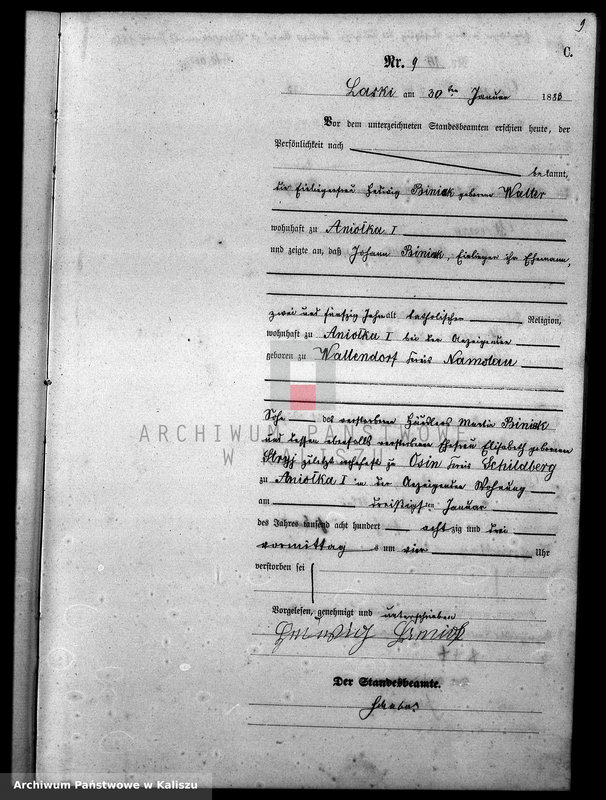 9
C.
Nr. 9
Laski am 30ten Januar 1883
Vor dem unterzeichneten Standesbeamten erschien heute, der
Persönlichkeit nach
bekannt,
die Einliegerfrau Hedwig Biniek geborene Walter
wohnhaft zu Aniolka I
und zeigte an, daß Johann Biniek, Einlieger ihr Ehemann,
zwei und fünfzig Jahr alt katholischer Religion,
wohnhaft zu Aniolka I bei der Anzeigenden
geboren zu Wallendorf Kreis Namslau
Sohn des verstorbenen Häuslers Martin Biniek
und dessen ebenfalls verstorbenen Ehefrau Elisabeth geborenen
zuletzt wohnhaft zu Osin Kreis Schildberg
zu Aniolka I in der Anzeigenden Wohnung
am dreißigsten Januar
des Jahres tausend acht hundert achtzig und drei
vormittags um vier Uhr
verstorben sei
Vorgelesen, genehmigt und unterschrieben
Hedwig Biniek
Der Standesbeamte.
ARCHIWUM PAŃSTWOWE
W KALISZU
Archiwum Państwowe w Kaliszu